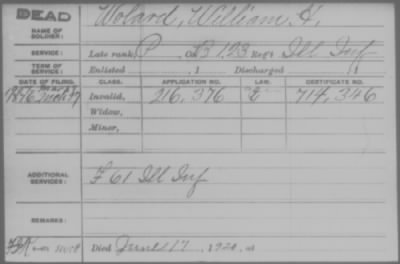 DEAD
Wolard, William H.
NAME OF SOLDIER:
SERVICE: Late rank P Co. B 123 Reg't Ill Inf
TERM OF SERVICE: Enlisted , 1 Discharged , 1
DATE OF FILING. CLASS. APPLICATION NO. LAW. CERTIFICATE NO.
1876 Invalid, 216,376 714,346
Widow,
Minor,
ADDITIONAL SERVICES: F 61 Ill Inf
REMARKS:
Died June 17, 1920, at